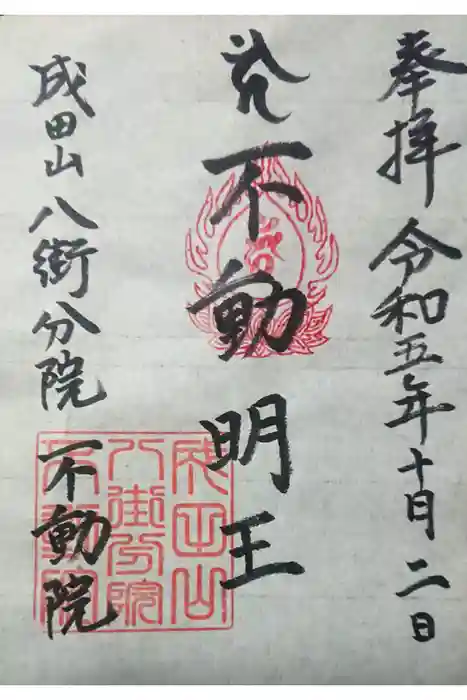 奉拝 令和五年十月二日
不動明王
成田山八街分院 不動院
成田山
八街分院
不動院